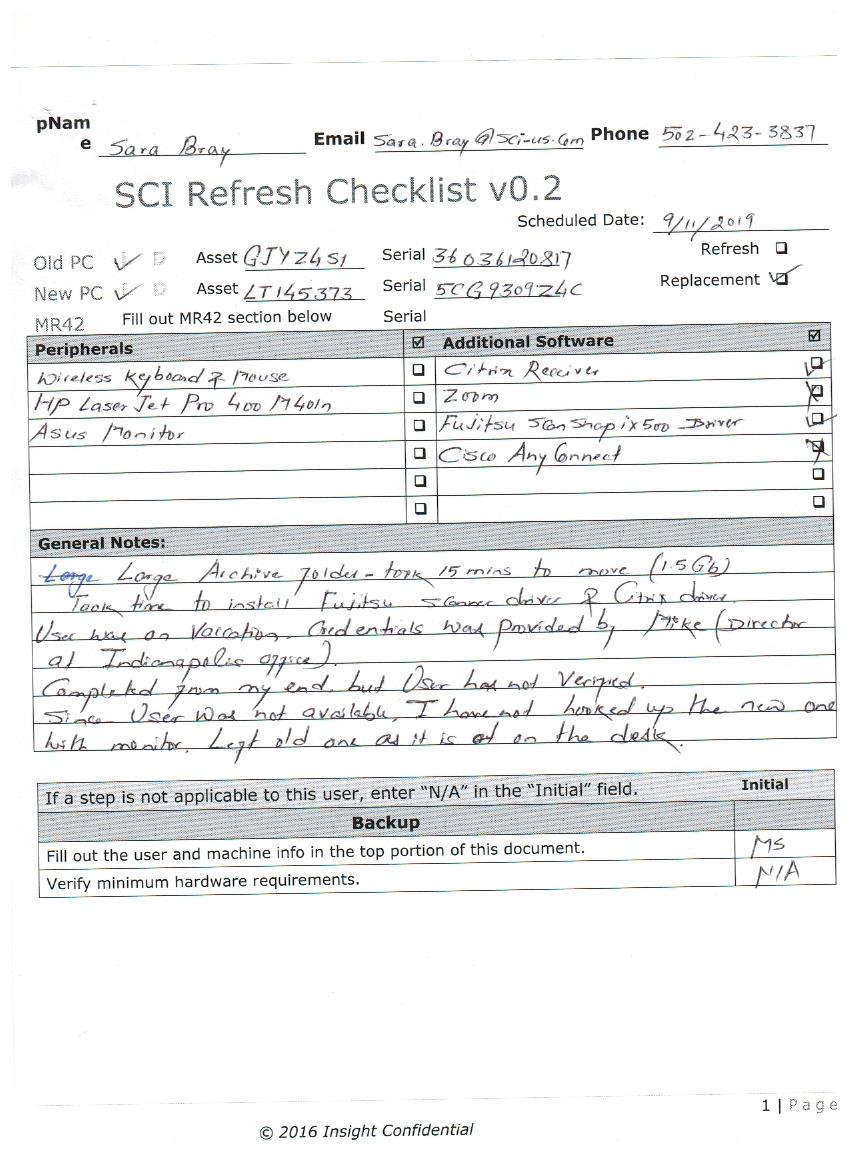 pNam
e Sara Bray Email Sara.Bray@sci-us.com Phone 502-423-3837
SCI Refresh Checklist v0.2
Scheduled Date: 9/11/2019
Old PC Asset GJYZ4S1 Serial 36036120817 Refresh
New PC Asset LT145373 Serial 5CG9309Z4C Replacement
MR42 Fill out MR42 section below Serial
Peripherals Additional Software
Wireless Keyboard & Mouse Citrix Receiver
HP LaserJet Pro 400 M401n Zoom
Asus Monitor Fujitsu ScanSnap ix500 Driver
Cisco Any Connect
General Notes:
Large Large Archive folder - took 15 mins to move (1.5Gb)
Took time to install Fujitsu scanner driver & Citrix driver.
User was on Vaccation. Credentials was provided by Mike (Director
at Indianapolis office).
Completed from my end. but User has not Verified.
Since User was not available, I have not hooked up the new one
with monitor. Left old one as it is on the desk.
If a step is not applicable to this user, enter “N/A” in the “Initial” field. Initial
Backup
Fill out the user and machine info in the top portion of this document. MS
Verify minimum hardware requirements. N/A
1 | Page
© 2016 Insight Confidential